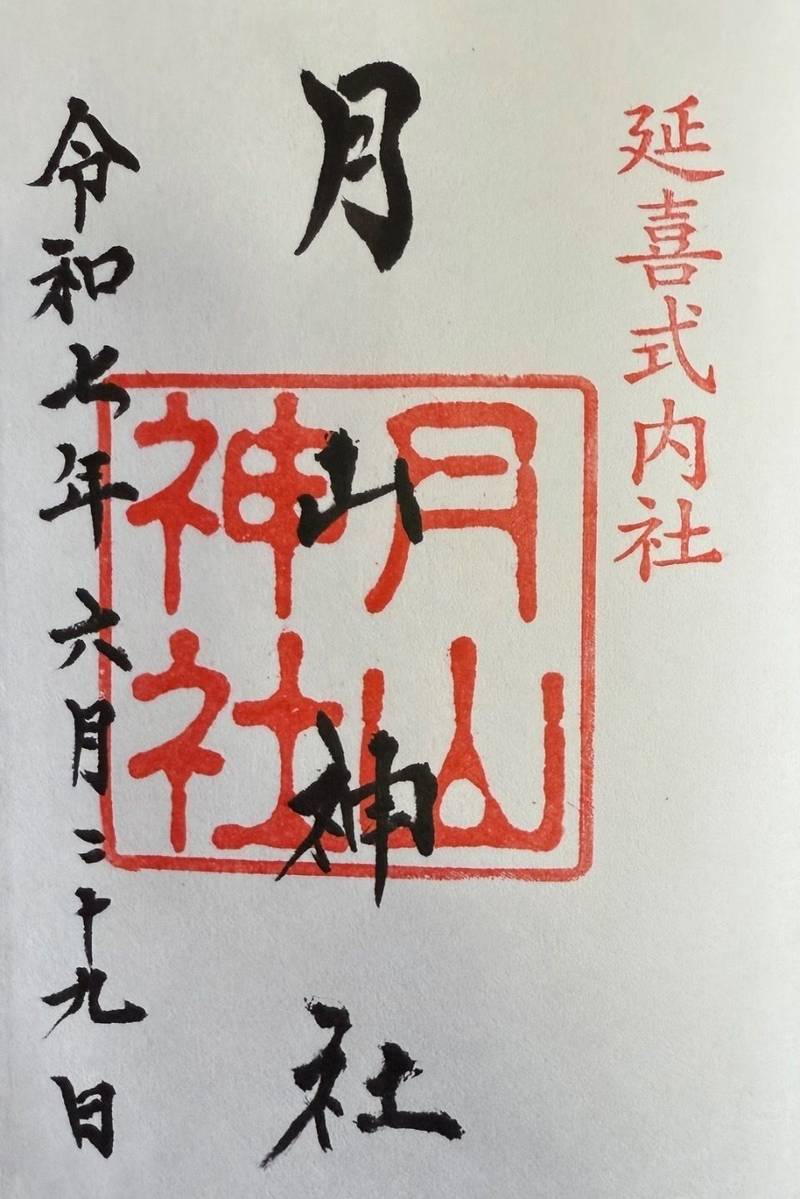 延喜式内社
月山神社
月山
神社
令和七年六月二十九日